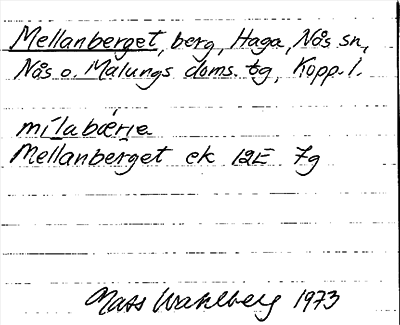 Mellanberget, berg, Haga, Nås sn,
Nås o. Malungs doms. tg, Kopp. l.
mílabǽrjɐ
Mellanberget ek 12E 7g
Mats Wahlberg 1973